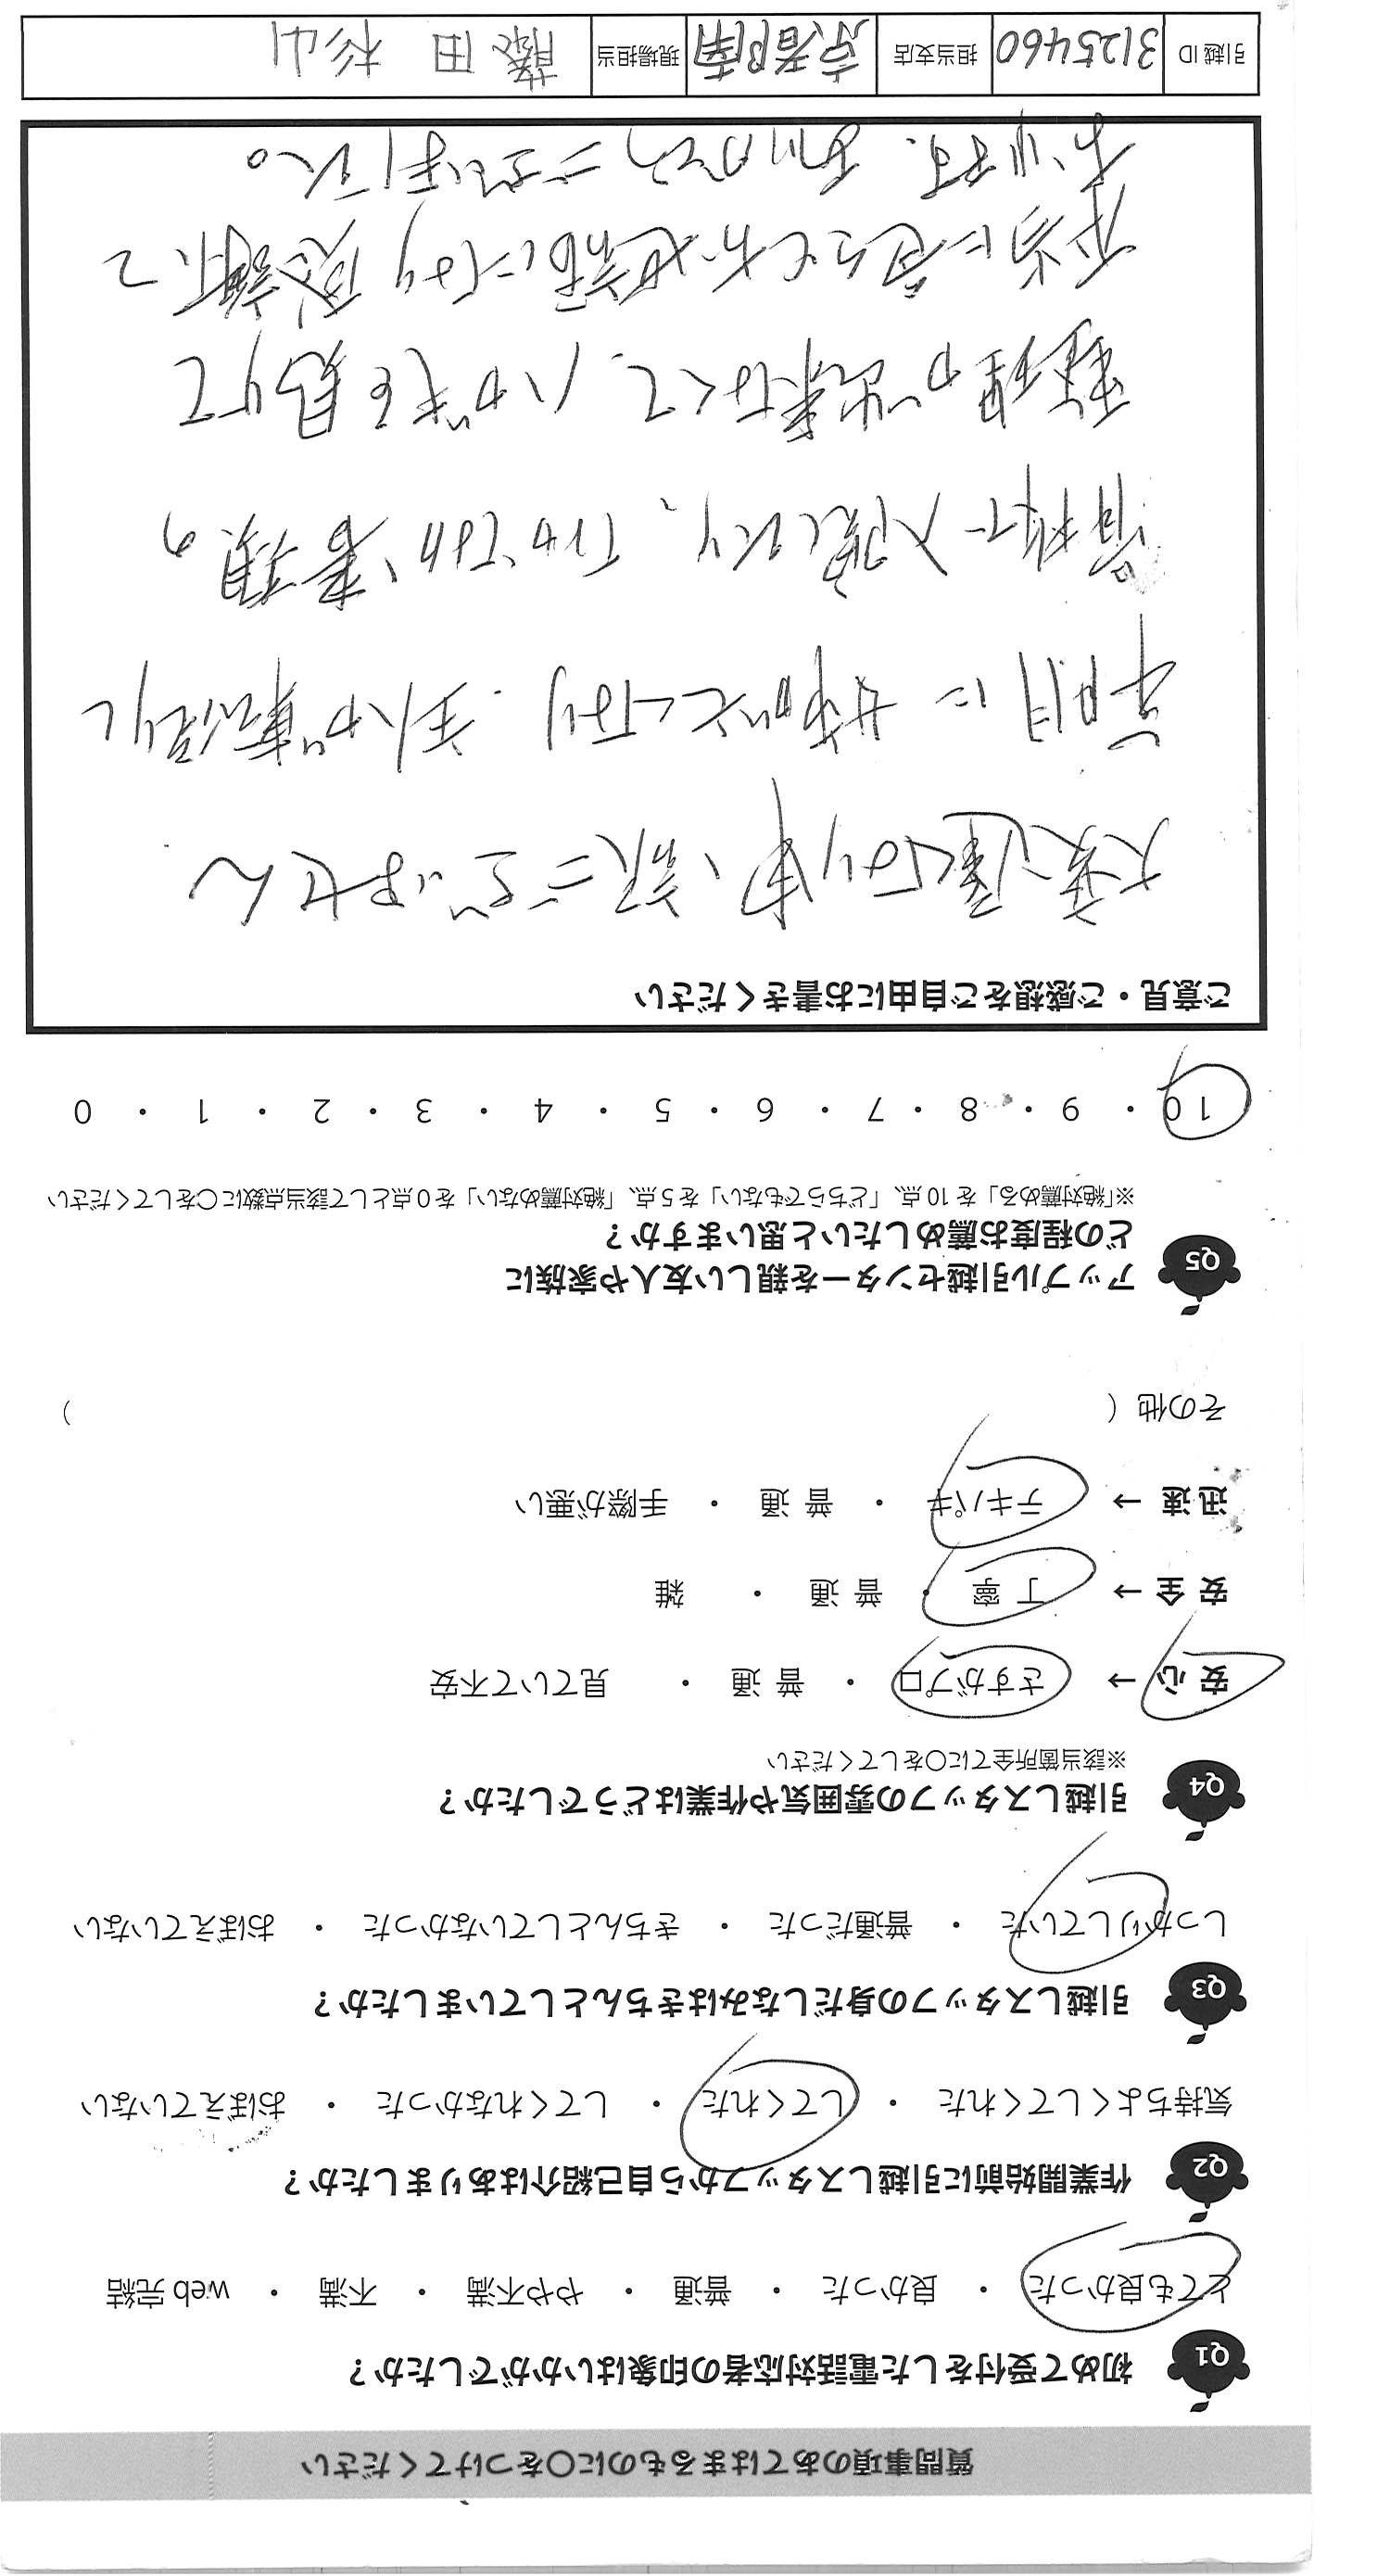 質問事項のあてはまるものに○をつけてください
Q1 初めて受付をした電話対応者の印象はいかがでしたか？
とても良かった ・ 良かった ・ 普通 ・ やや不満 ・ 不満 ・ web 完結
Q2 作業開始前に引越しスタッフから自己紹介はありましたか？
気持ちよくしてくれた ・ してくれた ・ してくれなかった ・ おぼえていない
Q3 引越しスタッフの身だしなみはきちんとしていましたか？
しっかりしていた ・ 普通だった ・ きちんとしていなかった ・ おぼえていない
Q4 引越しスタッフの雰囲気や作業はどうでしたか？
※該当箇所全てに○をしてください
安 心 → さすがプロ ・ 普 通 ・ 見ていて不安
安 全 → 丁 寧 ・ 普 通 ・ 雑
迅 速 → テキパキ ・ 普 通 ・ 手際が悪い
その他（ ）
Q5 アップル引越センターを親しい友人や家族に
どの程度お薦めしたいと思いますか？
※「絶対薦める」を 10 点、「どちらでもない」を 5 点、「絶対薦めない」を 0 点として該当点数に○をしてください
10 ・ 9 ・ 8 ・ 7 ・ 6 ・ 5 ・ 4 ・ 3 ・ 2 ・ 1 ・ 0
ご意見・ご感想をご自由にお書きください
大変遅くなり申し訳ございません
に 母が亡くなり、主人が
入院したり、書類の
整理が出来なくて、ハガキを見つけて
本当に お世話になり感謝して
おります。ありがとうございました。
引越 ID 3125460 担当支店 京都南 現場担当 藤田 杉山